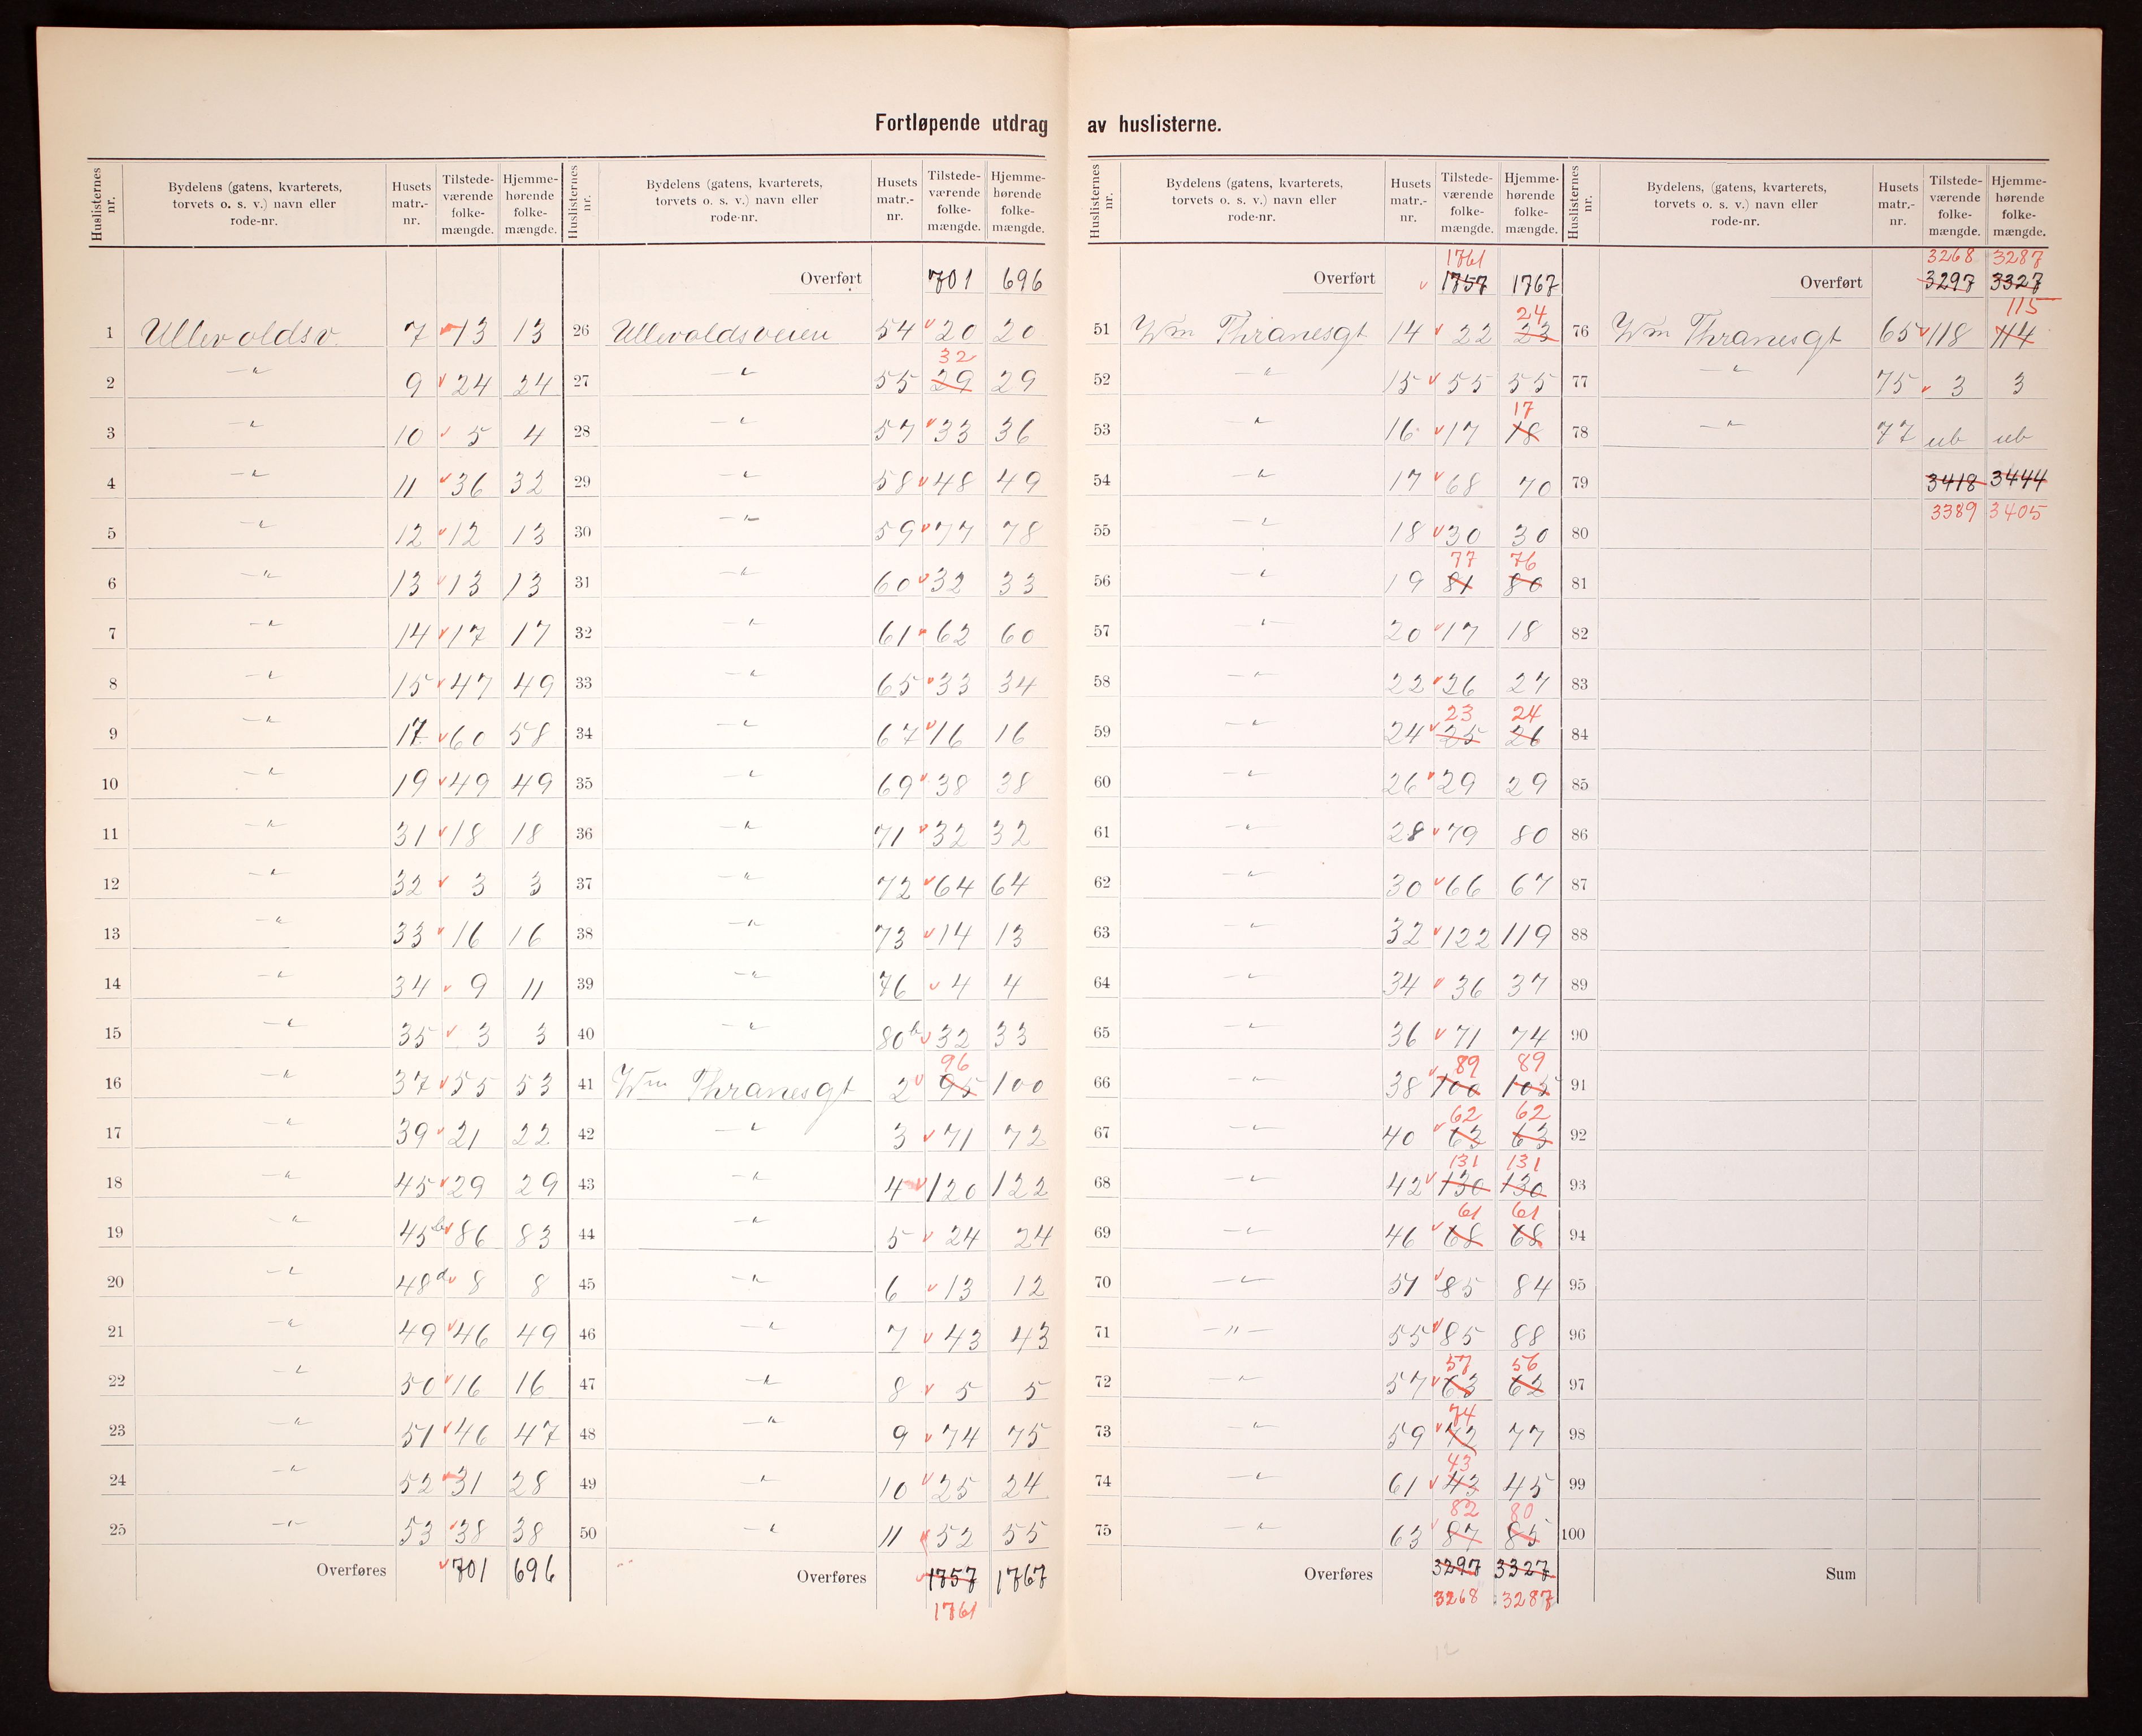 Fortløpende utdrag av huslisterne.
Huslisternes nr. Bydelens (gatens, kvarterets, torvets o. s. v.) navn eller rode-nr. Husets matr.-nr. Tilstede-værende folke-mængde. Hjemme-hørende folke-mængde.
1 Ullevoldsv. 7 13 13
2 —"— 9 24 24
3 —"— 10 5 4
4 —"— 11 36 32
5 —"— 12 12 13
6 —"— 13 13 13
7 —"— 14 17 17
8 —"— 15 47 49
9 —"— 17 60 58
10 —"— 19 49 49
11 —"— 31 18 18
12 —"— 32 3 3
13 —"— 33 16 16
14 —"— 34 9 11
15 —"— 35 3 3
16 —"— 37 55 53
17 —"— 39 21 22
18 —"— 45 29 29
19 —"— 45b 86 83
20 —"— 48d 8 8
21 —"— 49 46 49
22 —"— 50 16 16
23 —"— 51 46 47
24 —"— 52 31 28
25 —"— 53 38 38
Overføres 701 696
Huslisternes nr. Bydelens (gatens, kvarterets, torvets o. s. v.) navn eller rode-nr. Husets matr.-nr. Tilstede-værende folke-mængde. Hjemme-hørende folke-mængde.
Overført 701 696
26 Ullevoldsveien 54 20 20
32
27 —"— 55 29 29
28 —"— 57 33 36
29 —"— 58 48 49
30 —"— 59 77 78
31 —"— 60 32 33
32 —"— 61 62 60
33 —"— 65 33 34
34 —"— 67 16 16
35 —"— 69 38 38
36 —"— 71 32 32
37 —"— 72 64 64
38 —"— 73 14 13
39 —"— 76 4 4
40 —"— 80b 32 33
96
41 Wm Thranesgt 2 95 100
42 —"— 3 71 72
43 —"— 4 120 122
44 —"— 5 24 24
45 —"— 6 13 12
46 —"— 7 43 43
47 —"— 8 5 5
48 —"— 9 74 75
49 —"— 10 25 24
50 —"— 11 52 55
Overføres 1757 1767
1761
Huslisternes nr. Bydelens (gatens, kvarterets, torvets o. s. v.) navn eller rode-nr. Husets matr.-nr. Tilstede-værende folke-mængde. Hjemme-hørende folke-mængde.
1761
Overført 1757 1767
24
51 Wm Thranesgt 14 22 23
52 —"— 15 55 55
17
53 —"— 16 17 18
54 —"— 17 68 70
55 —"— 18 30 30
77 76
56 —"— 19 81 80
57 —"— 20 17 18
58 —"— 22 26 27
23 24
59 —"— 24 25 26
60 —"— 26 29 29
61 —"— 28 79 80
62 —"— 30 66 67
63 —"— 32 122 119
64 —"— 34 36 37
65 —"— 36 71 74
89 89
66 —"— 38 100 105
62 62
67 —"— 40 63 63
131 131
68 —"— 42 130 130
61 61
69 —"— 46 68 68
70 —"— 51 85 84
71 —"— 55 85 88
57 56
72 —"— 57 63 62
74
73 —"— 59 72 77
43
74 —"— 61 43 45
82 80
75 —"— 63 87 85
Overføres 3297 3327
3268 3287
12
Huslisternes nr. Bydelens, (gatens, kvarterets, torvets o. s. v.) navn eller rode-nr. Husets matr.-nr. Tilstede-værende folke-mængde. Hjemme-hørende folke-mængde.
3268 3287
Overført 3297 3327
115
76 Wm Thranesgt 65 118 114
77 —"— 75 3 3
78 —"— 77 ub ub
79 3418 3444
3389 3405
80
81
82
83
84
85
86
87
88
89
90
91
92
93
94
95
96
97
98
99
100
Sum